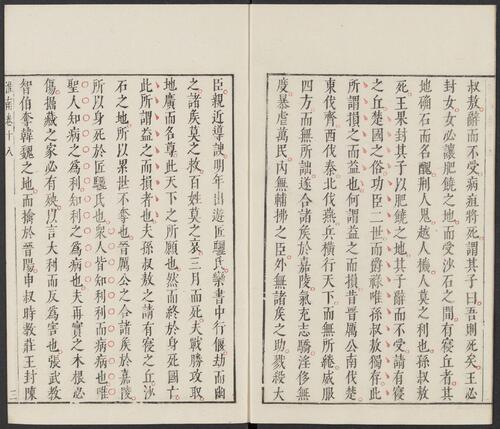 叔敖辭而不受病疽將死謂其子曰吾則死矣王必
封女女必讓肥饒之地而受沙石之間有寢丘者其
地确石而名醜荆人鬼越人禨人莫之利也孫叔敖
死王果封其子以肥饒之地其子辭而不受請有寢
之丘楚國之俗功臣二世而爵祿唯孫叔敖獨存此
所謂損之而益也何謂益之而損昔晉厲公南伐楚
東伐齊西伐秦北伐燕兵橫行天下而無所綣威服
四方而無所詘遂合諸矦於嘉陵氣充志驕淫侈無
度暴虐萬民内無輔拂之臣外無諸矦之助戮殺大
臣親近導諛明年出遊匠驪氏欒書中行偃劫而幽
之諸矦莫之救百姓莫之哀三月而死夫戰勝攻取
地廣而名尊此天下之所願也然而終於身死國亡
此所謂益之而損者也夫孫叔敖之請有寢之丘沙
石之地所以累世不奪也晉厲公之合諸矦於嘉陵
所以身死於匠驪氏也衆人皆知利利而病病也唯
聖人知病之為利知利之為病也夫再實之木根必
傷掘藏之家必有殃以言大利而反為害也張武教
智伯奪韓魏之地而擒於晉陽申叔時教莊王封陳
淮南卷十八
三